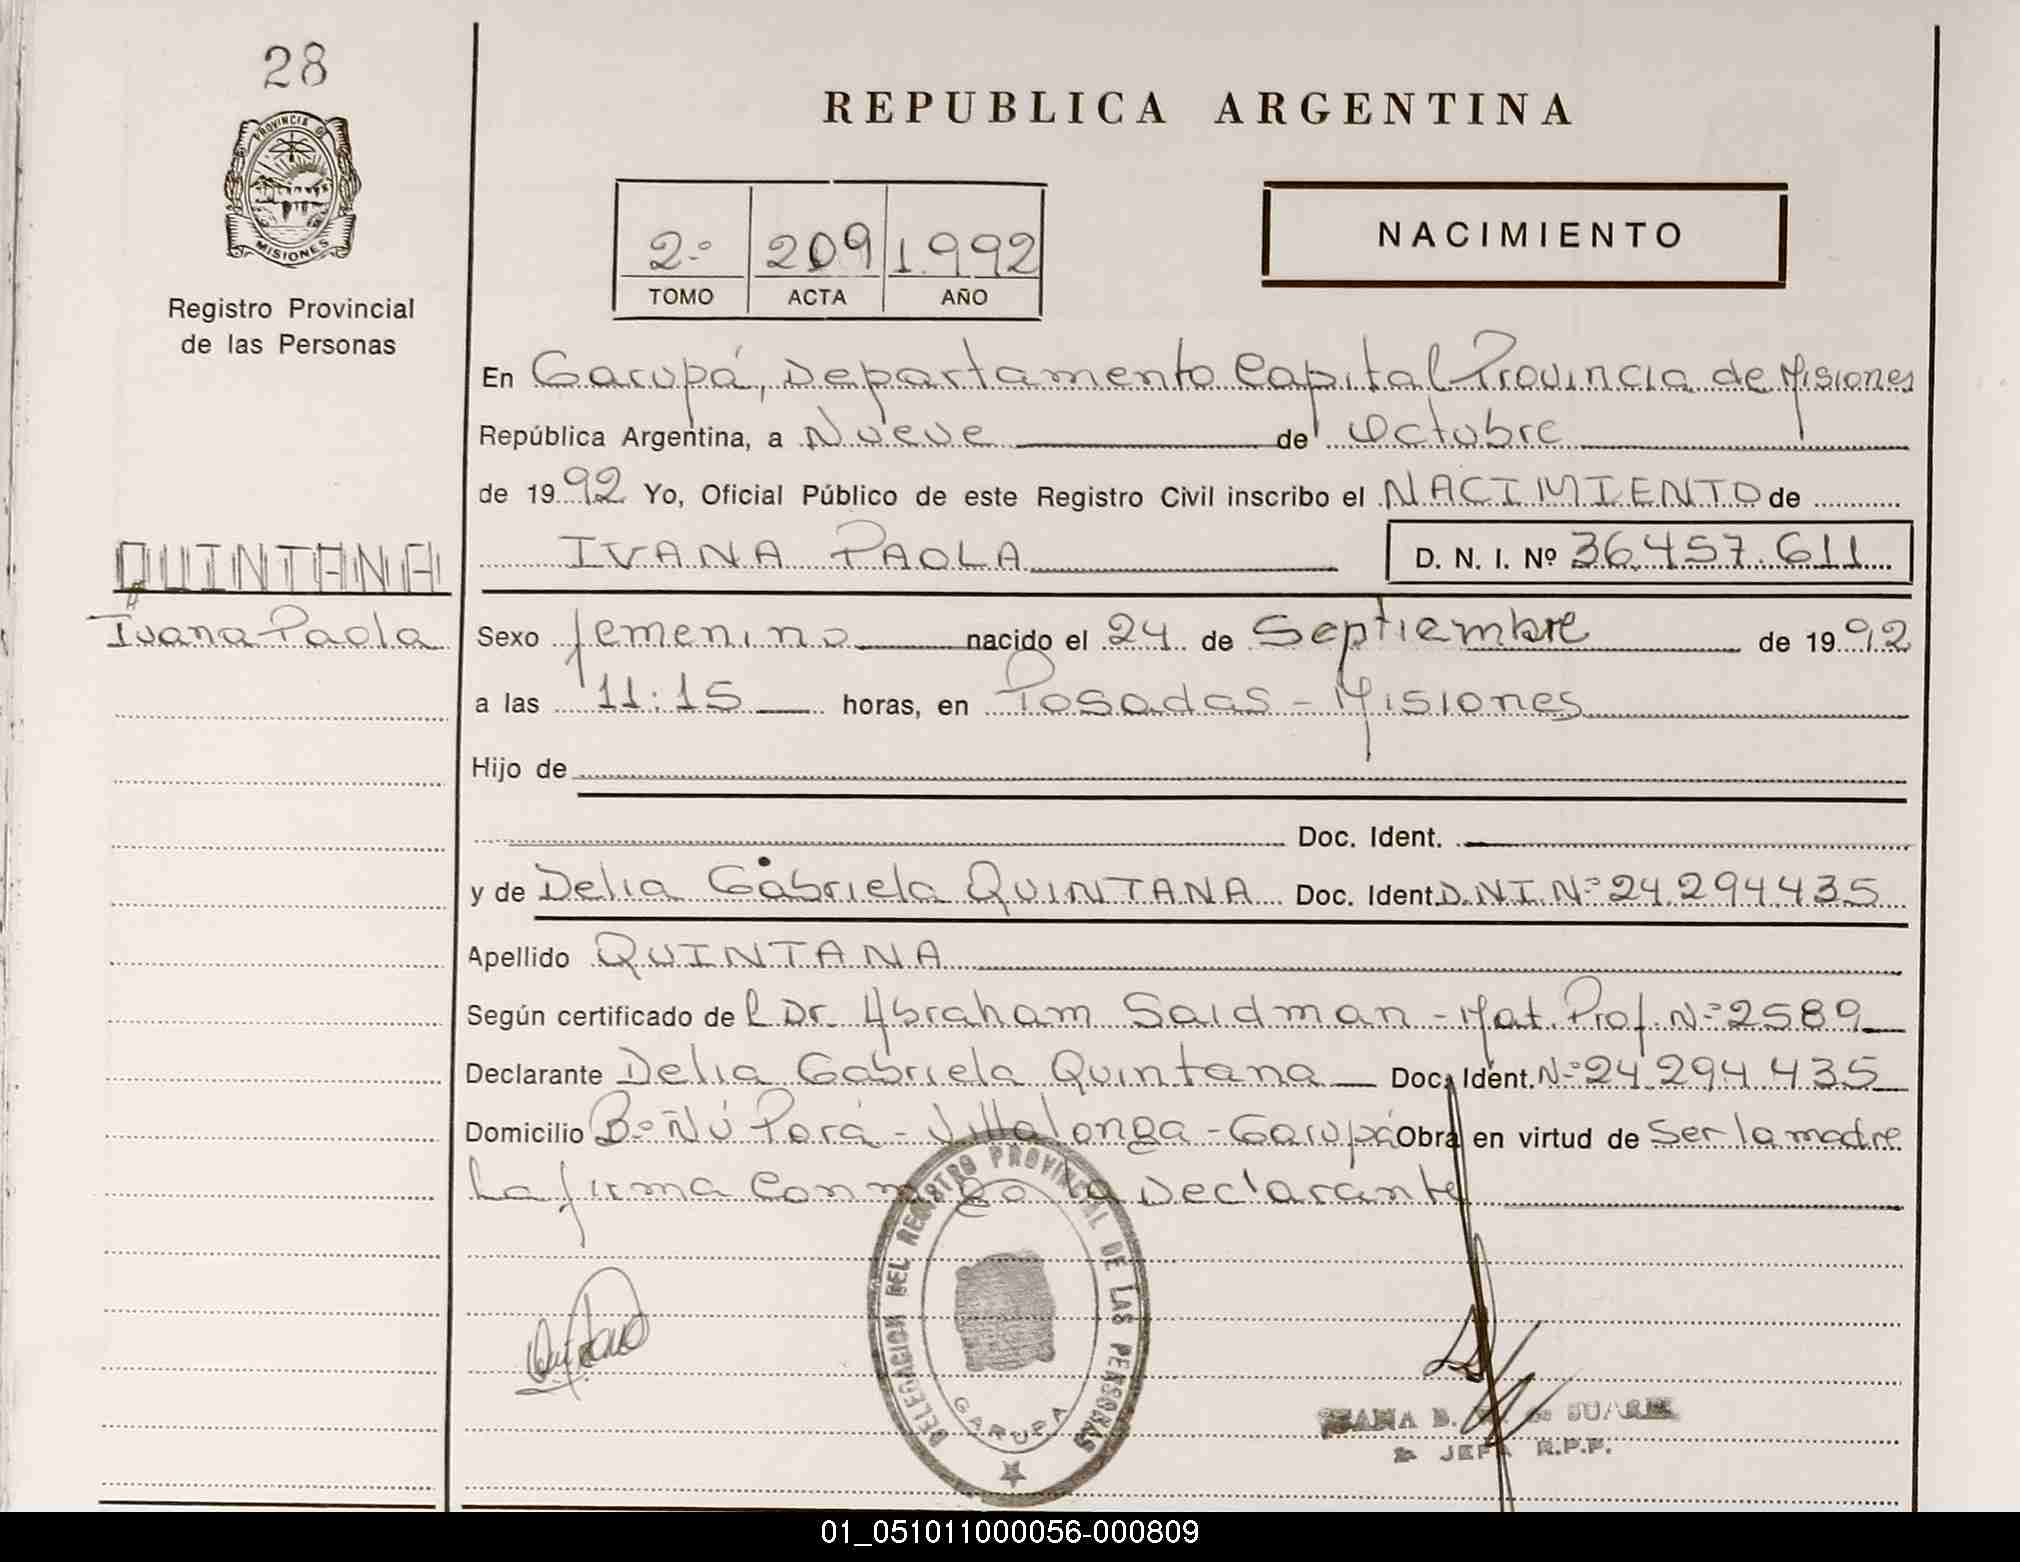 28
PROVINCIA DE
MISIONES
Registro Provincial
de las Personas
REPUBLICA ARGENTINA
2º 209 1992
TOMO ACTA AÑO
NACIMIENTO
En Garupá, Departamento Capital Provincia de Misiones
República Argentina, a Nueve de Octubre
de 1992 Yo, Oficial Público de este Registro Civil inscribo el NACIMIENTO de
IVANA PAOLA D. N. I. Nº 36.457.611
QUINTANA
Ivana Paola
Sexo femenino nacido el 24 de Septiembre de 1992
a las 11:15 horas, en Posadas - Misiones
Hijo de
Doc. Ident.
y de Delia Gabriela QUINTANA Doc. Ident. D.N.I. Nº 24.294.435
Apellido QUINTANA
Según certificado del Dr. Abraham Saidman - Mat. Prof. Nº 2589
Declarante Delia Gabriela Quintana Doc. Ident. Nº 24.294.435
Domicilio Bº Ñú Porá - Villalonga - Garupá Obra en virtud de ser la madre
La firma conmigo la Declarante
DELEGACION DEL REGISTRO PROVINCIAL DE LAS PERSONAS
GARUPA
Quintana
B. de SUAREZ
JEFA R.P.P.
01_051011000056-000809